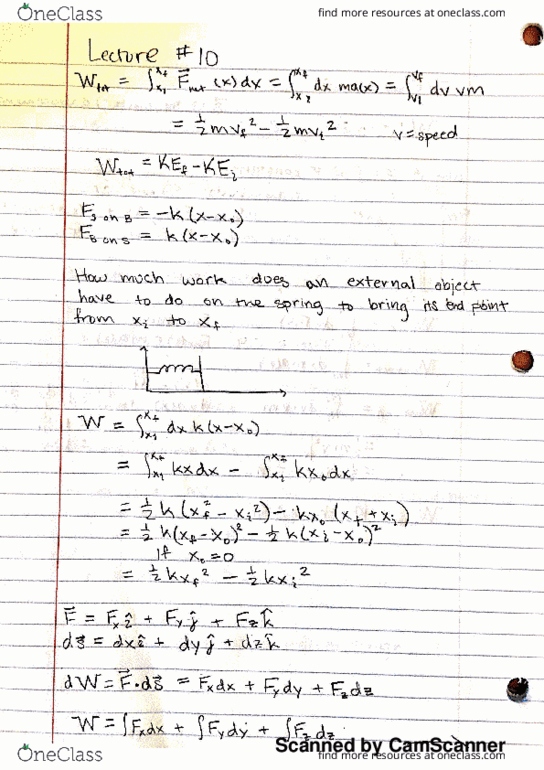 OneClass
find more resources at oneclass.com
Lecture #10
W_tot = ∫_{x_1}^{x_f} F⃗_net (x) dx = ∫_{x_2}^{x_f} dx ma(x) = ∫_{v_1}^{v_f} dv vm
= ½ mv_f² - ½ mv_i²
v = speed
W_tot = KE_f - KE_i
F_{S on B} = -k (x-x_0)
F_{B on S} = k (x-x_0)
How much work does an external object
have to do on the spring to bring its end point
from x_i to x_f
W = ∫_{x_1}^{x_f} dx k (x-x_0)
= ∫_{x_1}^{x_f} kx dx - ∫_{x_1}^{x_f} kx_0 dx
= ½ k (x_f² - x_i²) - kx_0 (x_f + x_i)
= ½ k(x_f - x_0)² - ½ k(x_i - x_0)²
If x_0 = 0
= ½ kx_f² - ½ kx_i²
F⃗ = F_x î + F_y ĵ + F_z k̂
ds⃗ = dx î + dy ĵ + dz k̂
dW = F⃗ • ds⃗ = F_x dx + F_y dy + F_z dz
W = ∫F_x dx + ∫F_y dy + ∫F_z dz
Scanned by CamScanner
OneClass
find more resources at oneclass.com